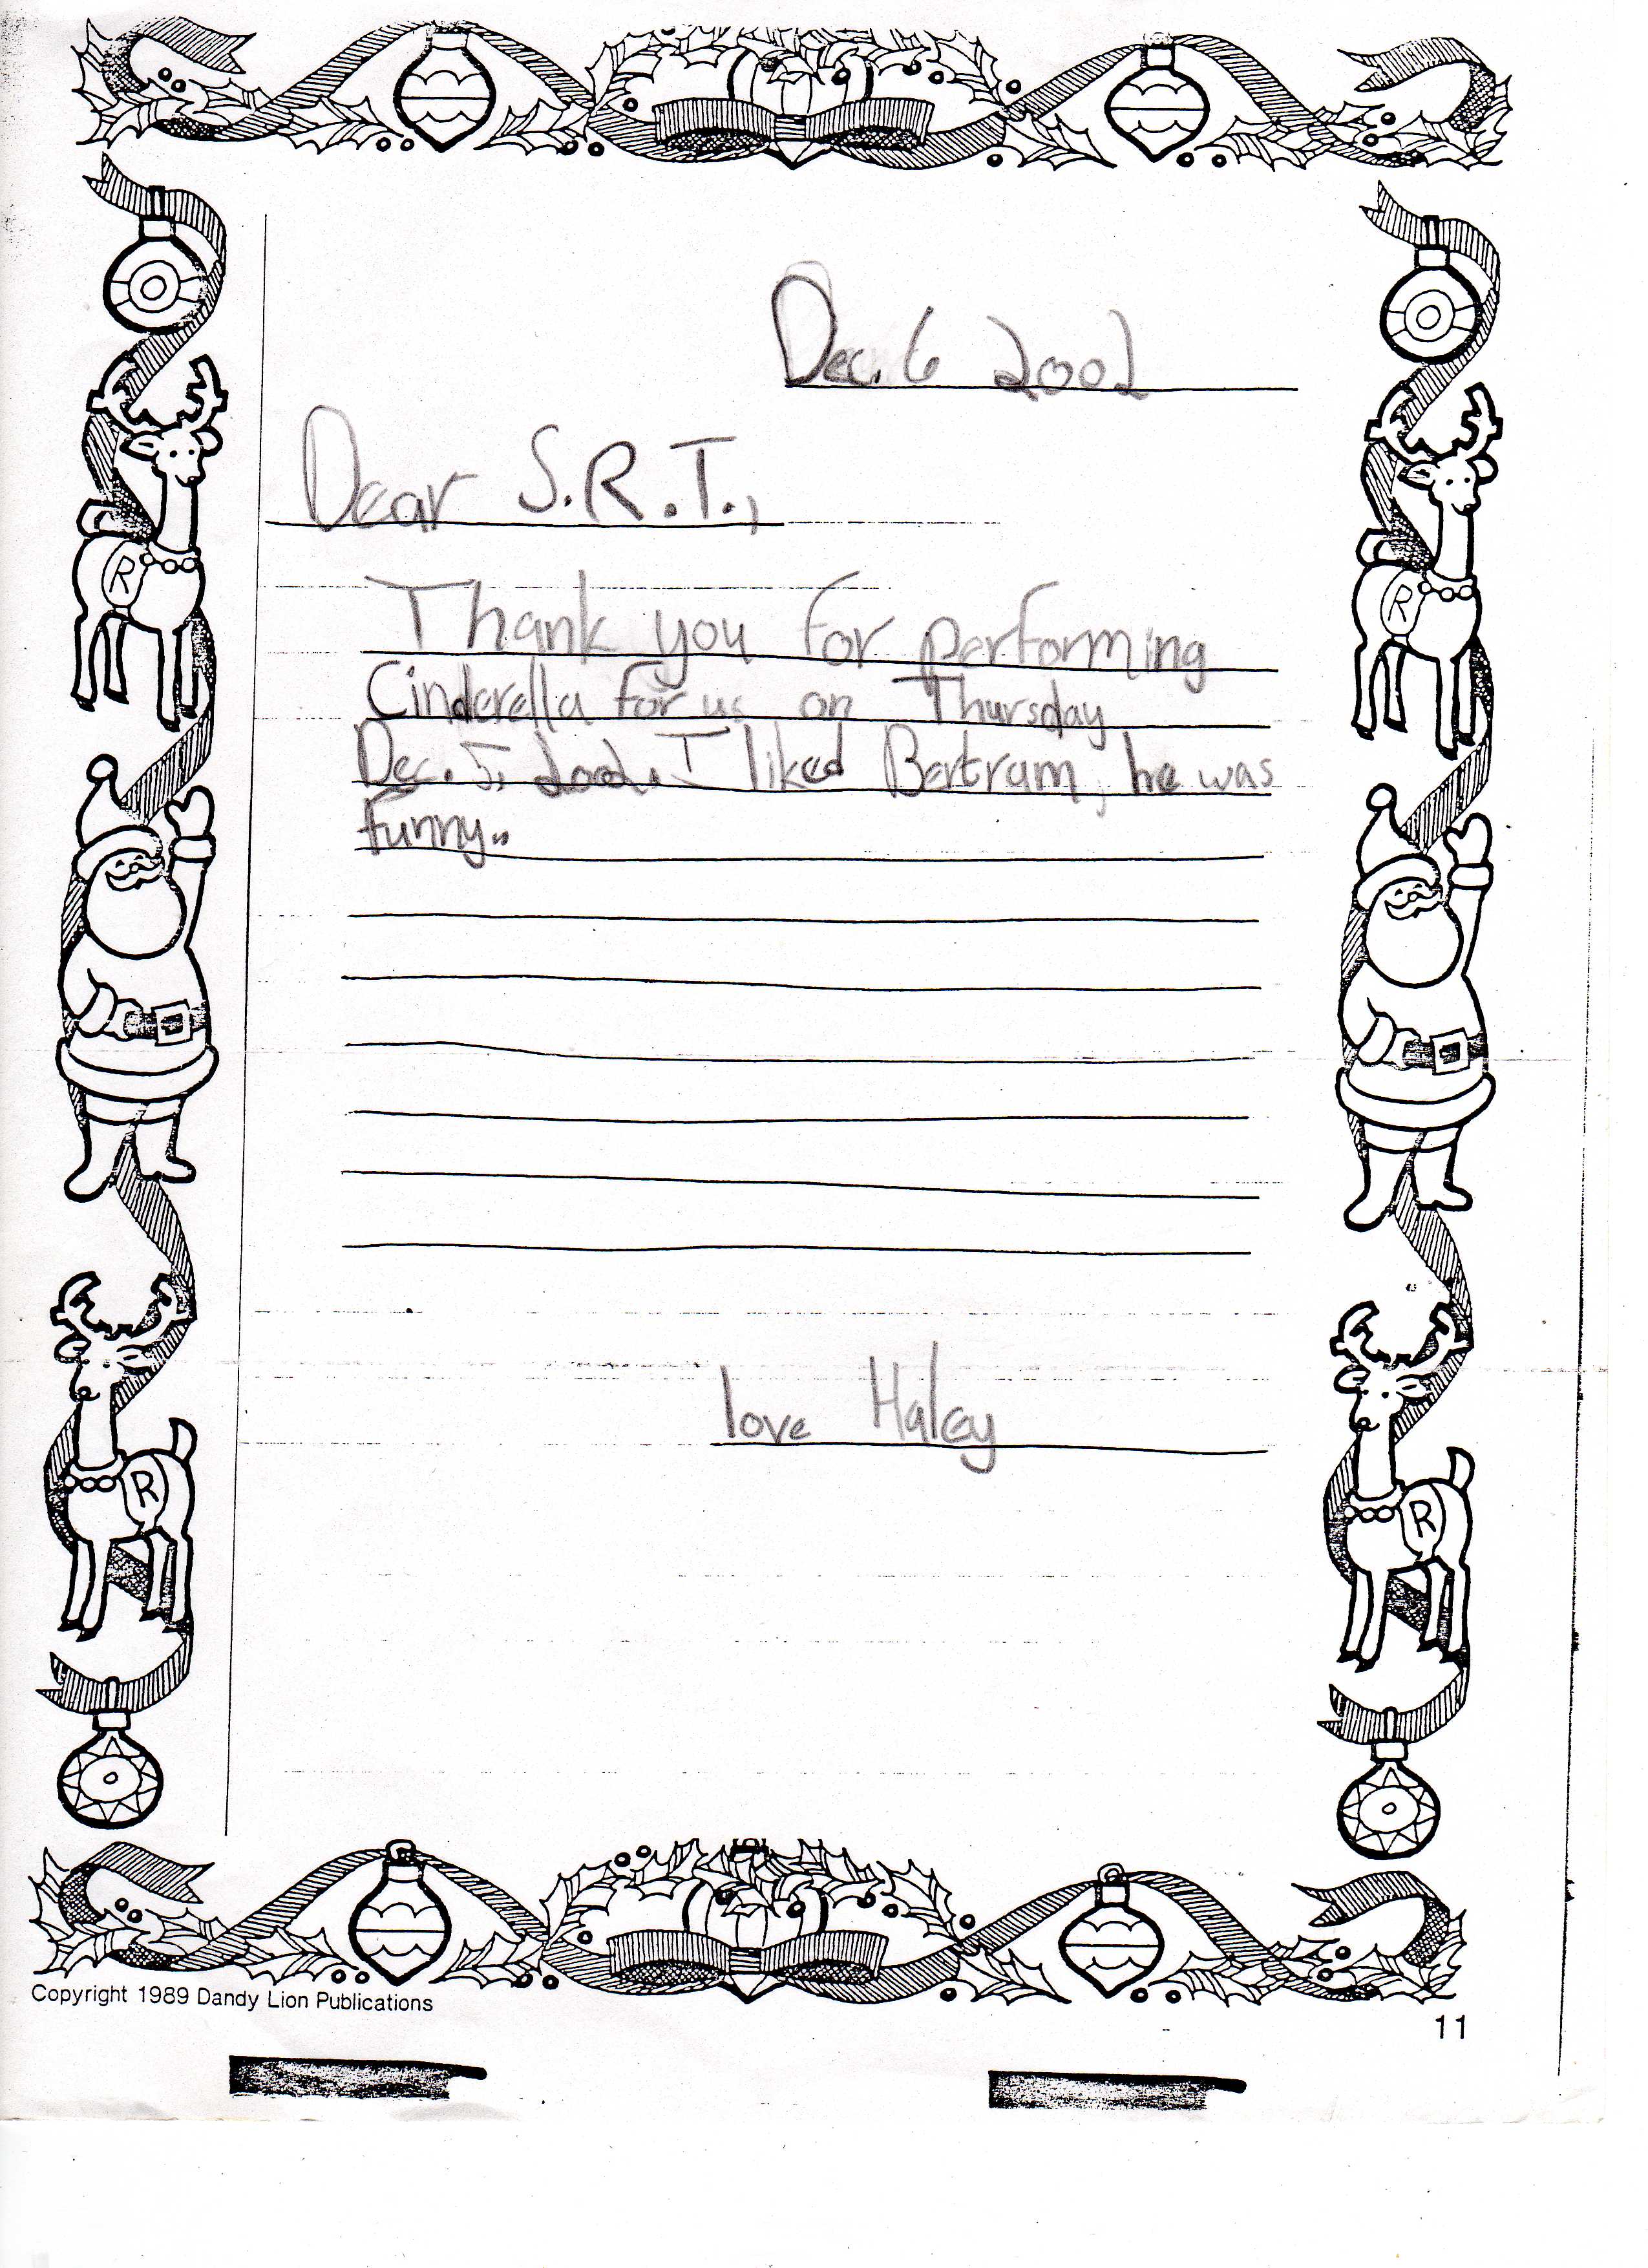 Dec. 6 2002
Dear S.R.T.,
Thank you for performing
Cinderella for us on Thursday
Dec. 5, 2002. I liked Bertram, he was
funny..
love Haley
R
R
R
R
Copyright 1989 Dandy Lion Publications
11